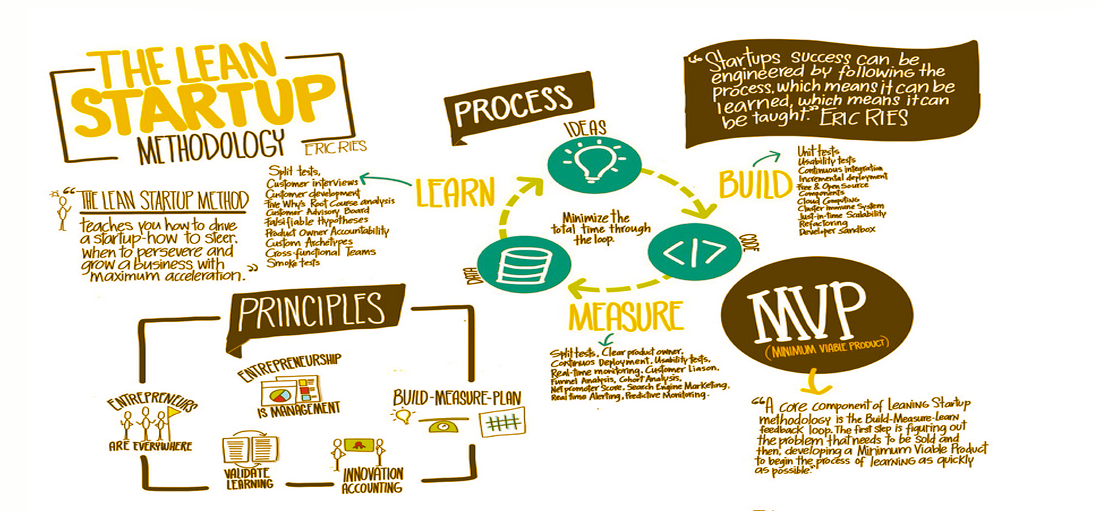 THE LEAN
STARTUP
METHODOLOGY
ERIC RIES
"THE LEAN STARTUP METHOD
teaches you how to drive
a startup-how to steer,
when to persevere and
grow a business with
maximum acceleration."
PROCESS
IDEAS
CODE
DATA
Minimize the
total time through
the loop.
LEARN
Split tests,
Customer interviews
Customer development
Five Why's Root Course analysis
Customer Advisory Board
Falsifiable Hypotheses
Product Owner Accountability
Custom Archetypes
Cross-functional Teams
Smoke tests
BUILD
Unit tests
Usability tests
Continuous integration
Incremental deployment
Free & Open Source
Components
Cloud Computing
Cluster Immune System
Just-in-time Scalability
Refactoring
Developer Sandbox
MEASURE
Split tests, Clear product owner,
Continuos Deployment, Usability tests,
Real-time monitoring, Customer Liason,
Funnel Analysis, Cohort Analysis,
Net promoter Score, Search Engine Marketing,
Real time Alerting, Predictive Monitoring.
"Startups success can be
engineered by following the
process, which means it can be
learned, which means it can
be taught." ERIC RIES
MVP
(MINIMUM VIABLE PRODUCT)
"A core component of leaning Startup
methodology is the Build-Measure-learn
feedback loop. The first step is figuring out
the problem that needs to be sold and
then, developing a Minimum Viable Product
to begin the process of learning as quickly
as possible."
PRINCIPLES
ENTREPRENEURS
ARE EVERYWHERE
ENTREPRENEURSHIP
IS MANAGEMENT
BUILD-MEASURE-PLAN
VALIDATE
LEARNING
INNOVATION
ACCOUNTING